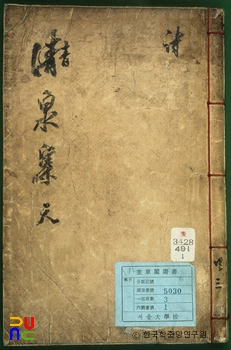 詩
清青泉集天
奎
3428
491
1
奎章閣圖書
5030
3
1
서울大學校
共三
© 한국학중앙연구원